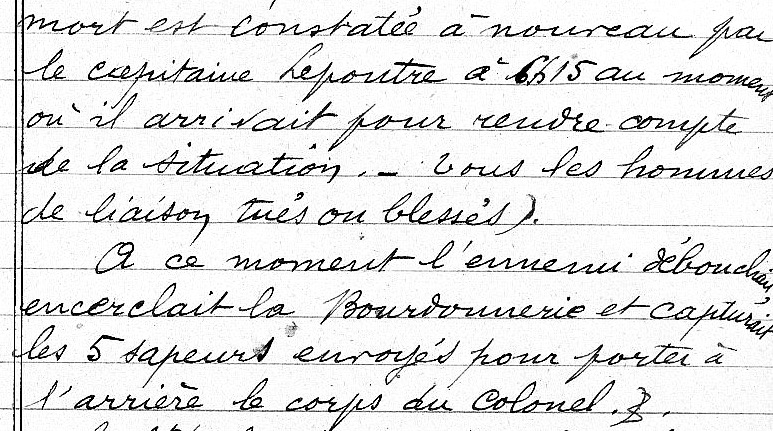 mort est constatée à nouveau par
le capitaine Lepoutre à 6h15 au moment
où il arrivait pour rendre compte
de la situation. _ Tous les hommes
de liaison tués ou blessés).
A ce moment l'ennemi débouchait
encerclait la Bourdonnerie et capturait
les 5 sapeurs envoyés pour porter à
l'arrière le corps du Colonel.